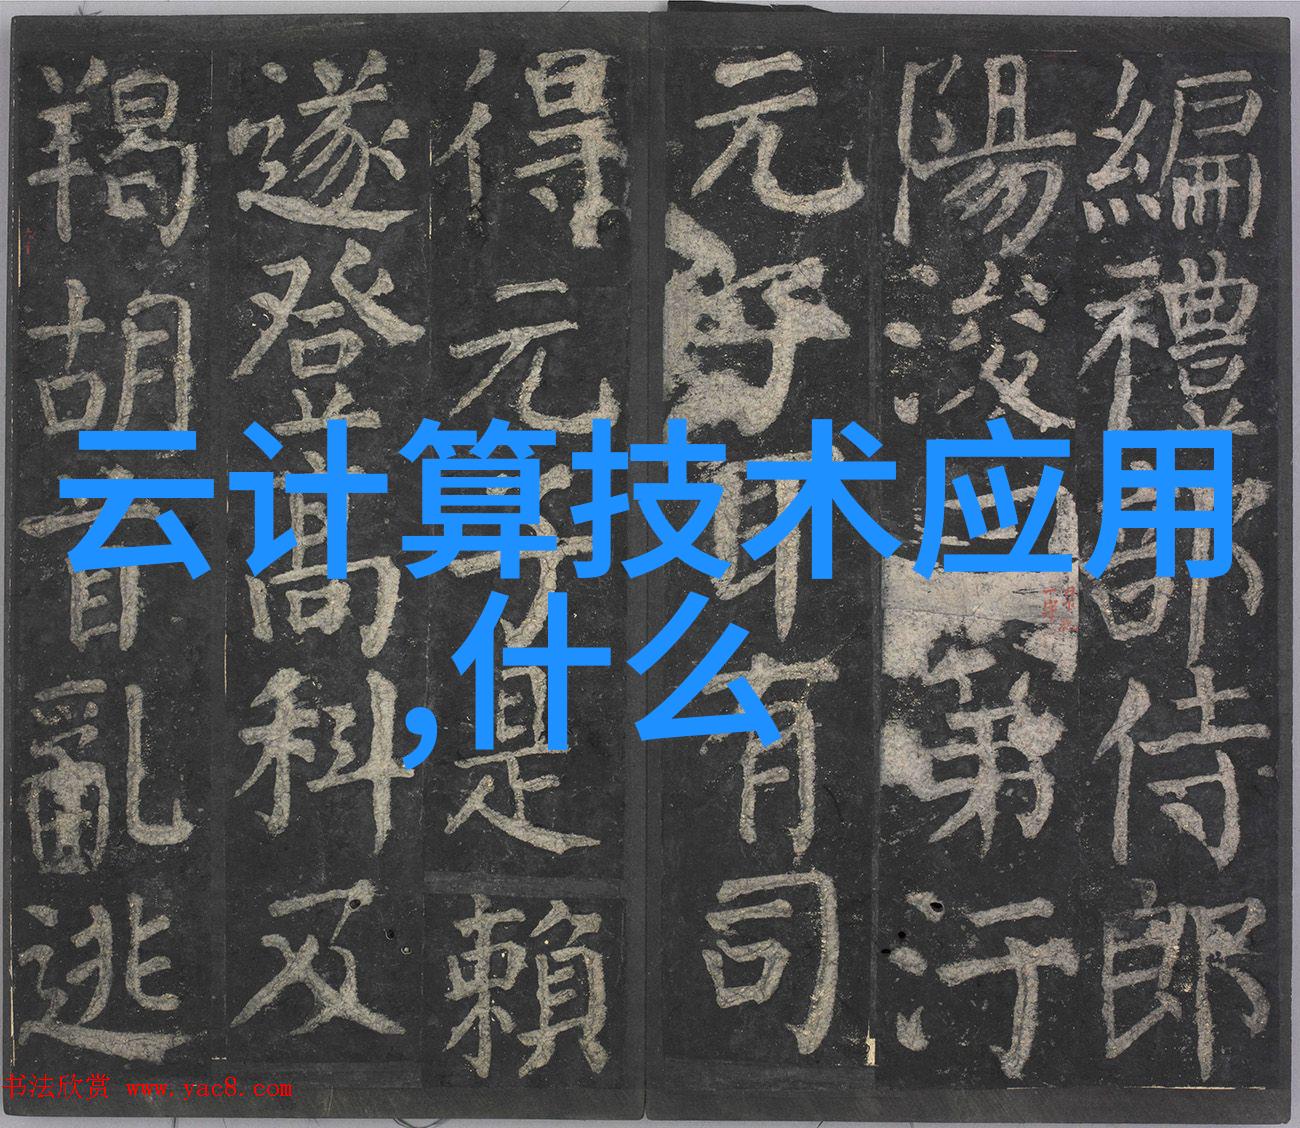 編禮部侍郎
陽浚曰第汙
元子耳有司
得元子是賴
遂登高科及
羯胡首亂逃
云计算技术应用
,什么
书法欣赏 www.yac8.com